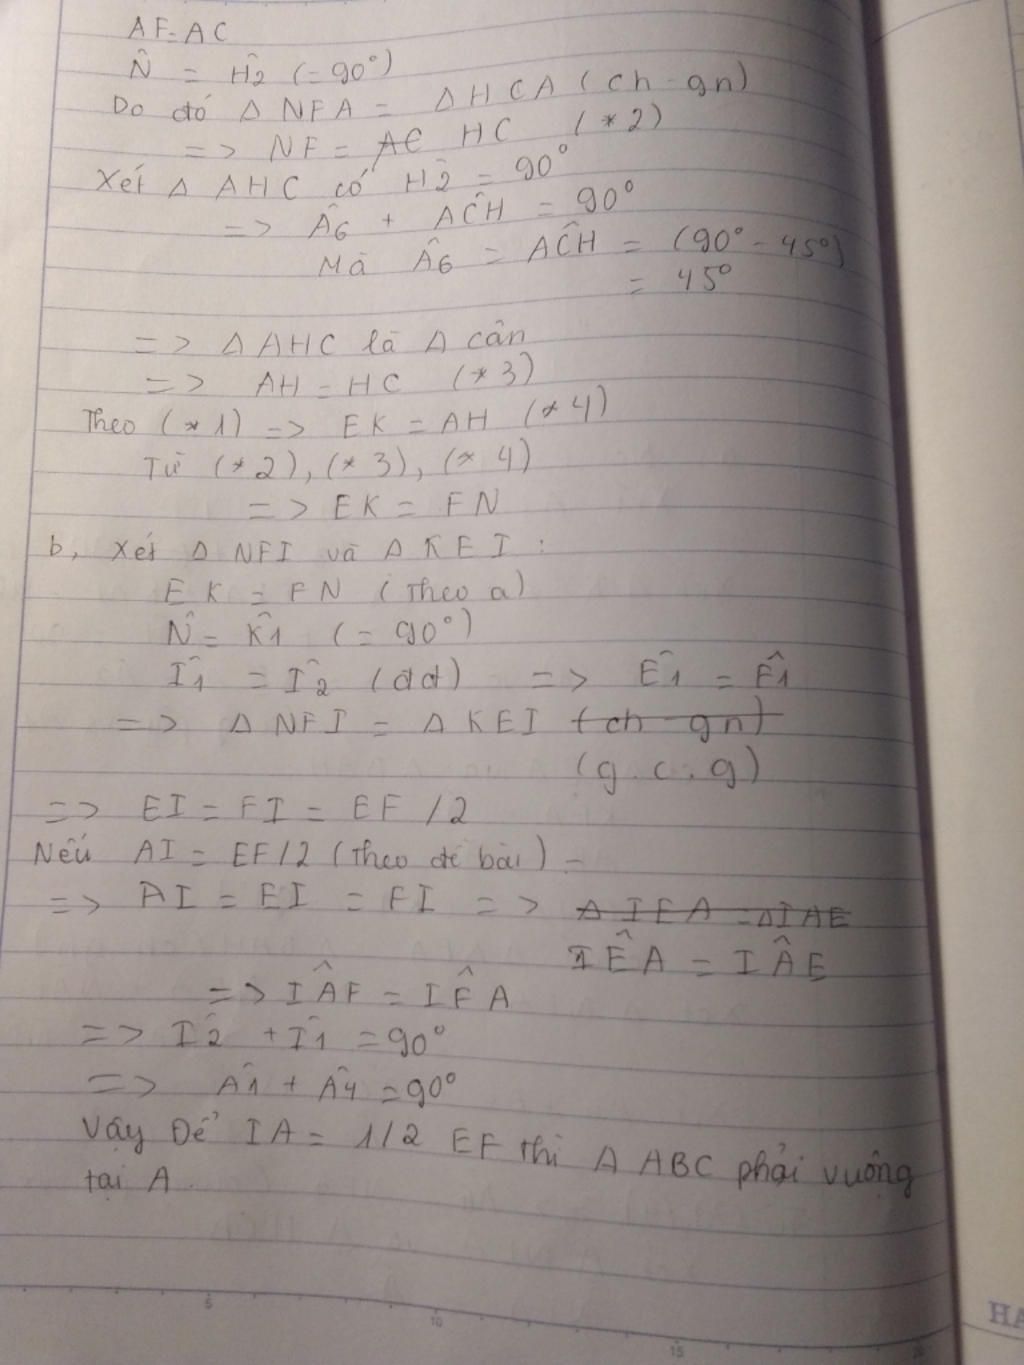 AF = AC
N̂ = Ĥ2 (= 90°)
Do đó Δ NFA = Δ HCA (ch - gn)
=> NF = HC (*2)
Xét Δ AHC có Ĥ2 = 90°
=> Â6 + AĈH = 90°
Mà Â6 = AĈH = (90° - 45°)
= 45°
=> Δ AHC là Δ cân
=> AH = HC (*3)
Theo (*1) => EK = AH (*4)
Từ (*2), (*3), (*4)
=> EK = FN
b, Xét Δ NFI và Δ KEI :
EK = FN (Theo a)
N̂ = K̂1 (= 90°)
Î1 = Î2 (đđ) => Ê1 = F̂1
=> Δ NFI = Δ KEI (ch - gn)
(g.c.g)
=> EI = FI = EF /2
Nếu AI = EF/2 (Theo đề bài) -
=> AI = EI = FI => Δ IEA = Δ IAE
IÊA = IÂE
=> IÂF = IF̂A
=> Î2 + Î1 = 90°
=> Â1 + Â4 = 90°
Vậy Để IA = 1/2 EF thì Δ ABC phải vuông
tại A.
5 10 15 20
HA